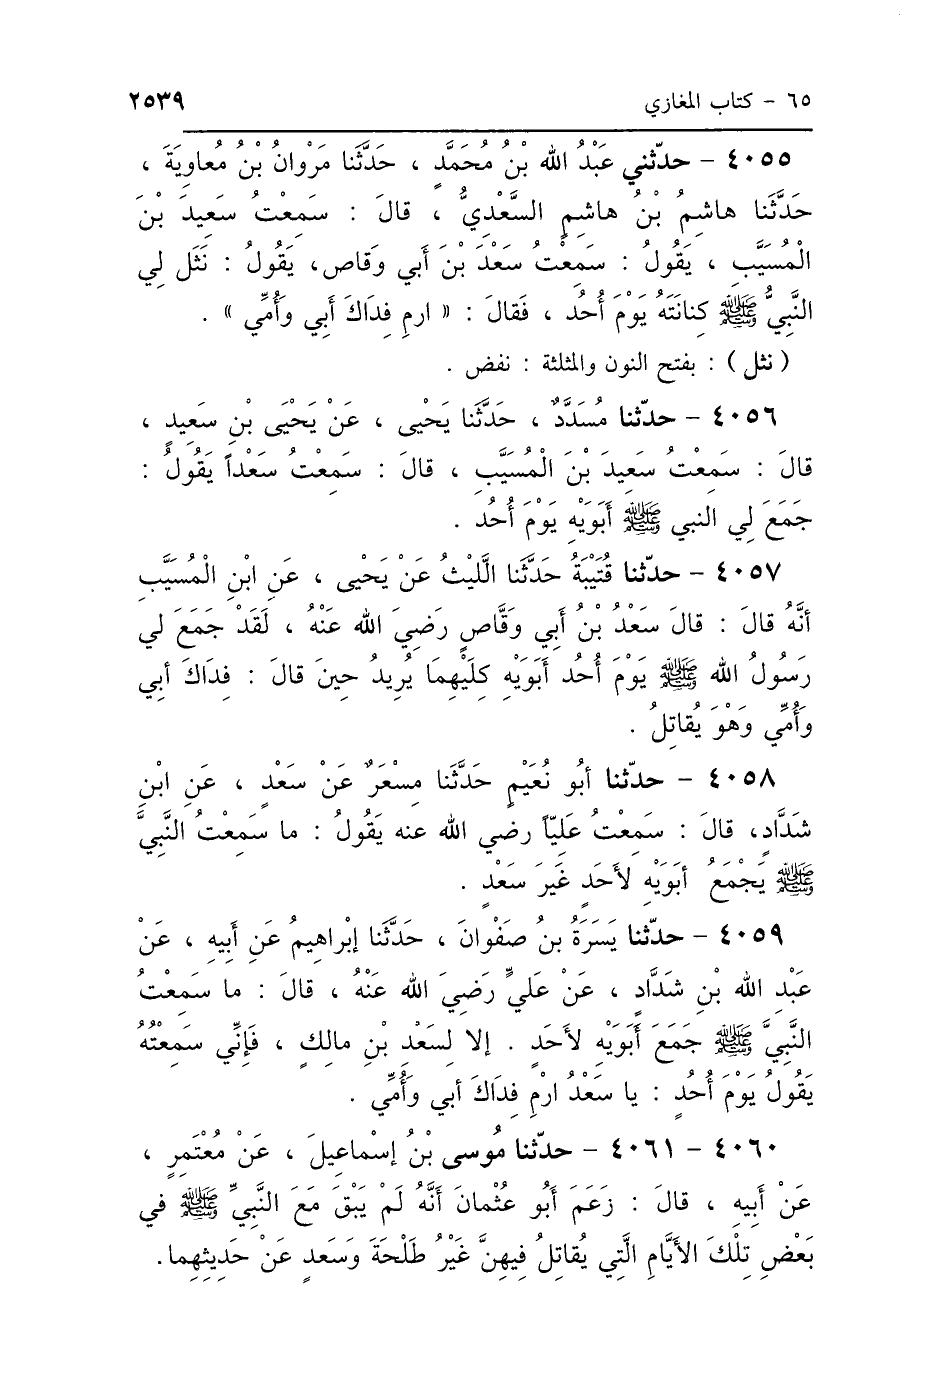 ٦٥ - كتاب المغازي ٢٥٣٩
٤٠٥٥ - حدّثني عَبْدُ الله بْنُ مُحَمَّدٍ ، حَدَّثَنا مَرْوانُ بْنُ مُعاوِيَةَ ،
حَدَّثَنا هاشِمُ بْنُ هاشِمٍ السَّعْدِيُّ ، قالَ : سَمِعْتُ سَعِيدَ بْنَ
الْمُسَيَّبِ ، يَقُولُ : سَمِعْتُ سَعْدَ بْنَ أَبي وقاص، يَقُولُ : نَثَل لِي
النَّبِيُّ ﷺ كِنانَتَهُ يَوْمَ أُحُدٍ ، فَقالَ : « ارمِ فِدَاكَ أَبي وأُمِّي » .
( نثل ) : بفتح النون والمثلثة : نفض .
٤٠٥٦ - حدّثنا مُسَدَّدٌ ، حَدَّثَنا يَحْيى ، عَنْ يَحْيَى بْنِ سَعِيدٍ ،
قالَ : سَمِعْتُ سَعِيدَ بْنَ الْمُسَيَّبِ ، قالَ : سَمِعْتُ سَعْداً يَقُولُ :
جَمَعَ لِي النبي ﷺ أَبَوَيْهِ يَوْمَ أُحُدٍ .
٤٠٥٧ - حدّثنا قُتَيْبَةُ حَدَّثَنا الَّليْثُ عَنْ يَحْيى ، عَنِ ابْنِ الْمُسَيَّبِ
أنَّهُ قالَ : قالَ سَعْدُ بْنُ أَبي وَقَّاصٍ رَضِيَ الله عَنْهُ ، لَقَدْ جَمَعَ لي
رَسُولُ الله ﷺ يَوْمَ أُحُدٍ أَبَوَيْهِ كِلَيْهِمَا يُرِيدُ حِينَ قالَ : فِدَاكَ أبي
وَأُمِّي وَهْوَ يُقاتِلُ .
٤٠٥٨ - حدّثنا أبُو نُعَيْمٍ حَدَّثَنا مِسْعَرٌ عَنْ سَعْدٍ ، عَنِ ابْنِ
شَدَّادٍ، قالَ : سَمِعْتُ عَلِيّاً رضي الله عنه يَقُولُ : ما سَمِعْتُ النَّبِيَّ
ﷺ يَجْمَعُ أبَوَيْهِ لأَحَدٍ غَيرَ سَعْدٍ .
٤٠٥٩ - حدّثنا يَسَرَةُ بنُ صَفْوانَ ، حَدَّثَنا إبْراهِيمُ عَن أبِيهِ ، عَنْ
عَبْدِ الله بْنِ شَدَّادٍ ، عَنْ عَليٍّ رَضِيَ الله عَنْهُ ، قالَ : ما سَمِعتُ
النَّبِيَّ ﷺ جَمَعَ أَبَوَيْهِ لأَحَدٍ . إلا لِسَعْدِ بْنِ مالِكٍ ، فَإنِّي سَمِعْتُهُ
يَقُولُ يَوْمَ أُحُدٍ : يا سَعْدُ ارْمِ فِدَاكَ أبي وأُمِّي .
٤٠٦٠ - ٤٠٦١ - حدّثنا مُوسى بْنُ إسْماعِيلَ ، عَنْ مُعْتَمِرٍ ،
عَنْ أبِيهِ ، قالَ : زَعَمَ أَبُو عثْمانَ أَنَّهُ لَمْ يَبْقَ مَعَ النَّبيِّ ﷺ في
بَعْضِ تِلْكَ الأَيَّامِ الَّتِي يُقاتِلُ فِيهِنَّ غَيْرُ طَلْحَةَ وَسَعدٍ عَنْ حَدِيثِهِما.